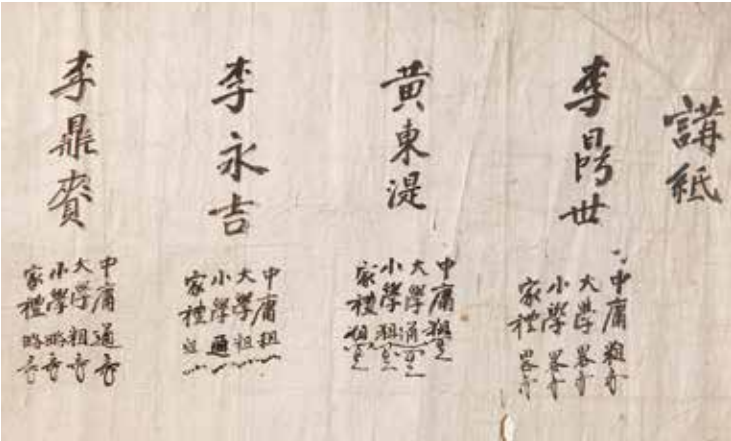 講紙
李暘世
中庸 粗
大學 畧
小學 畧
家禮 畧
黃東湜
中庸 粗
大學 通
小學 粗
家禮 粗
李永吉
中庸 粗
大學 粗
小學 通
家禮 粗
李鼎賚
中庸 通
大學 粗
小學 略
家禮 略